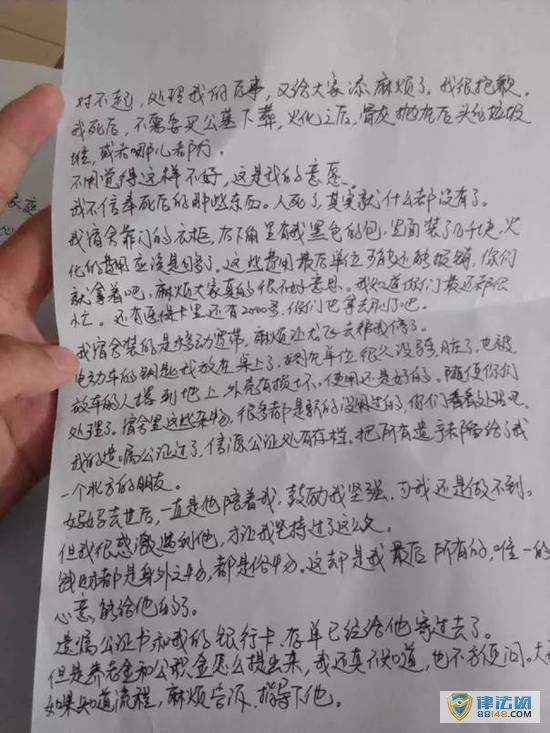 对不起，处理我的后事，又给大家添麻烦了。我很抱歉。
我死后，不需要买公墓下葬，火化之后，骨灰抛在后头的垃圾
堆，或者哪儿都行。
不用觉得这样不好，这是我的意愿。
我不信奉死后的那些东西。人死了，其实就什么都没有了。
我宿舍靠门的衣柜，左下角里有我黑色的包，里面装了几千块，火
化的费用应该是够了。这些费用最后单位可能还能报销，你们
就拿着吧，麻烦大家真的很不好意思。我知道你们最近都很
忙。还有医保卡里还有2000多，你们也拿去用了吧。
我宿舍装的是移动宽带，麻烦让龙飞去帮我停了。
电动车的钥匙我放在桌上了，在单位很久没骑，脏了，也被
放车的人撂到地上，外壳有损坏。使用还是好的。随便你们
处理了。宿舍里这些杂物，很多都是新的没用过的，你们看着处理吧。
我的遗嘱公证过了，信源公证处有存档。把所有遗产都留给了我
一个北方的朋友。
妈妈去世后，一直是他陪着我，鼓励我坚强，可我还是做不到。
但我很感激遇到他，才让我坚持过了这么久。
钱财都是身外之物，都是俗物。这却是我最后所有的，唯一的
心意，能给他的了。
遗嘱公证书和我的银行卡、存单已经给他寄过去了。
但是养老金和公积金怎么提出来，我还真不知道，也不方便问。大
如果知道流程，麻烦告诉、指导下他。
衣庭
心
律法网
88148.COM